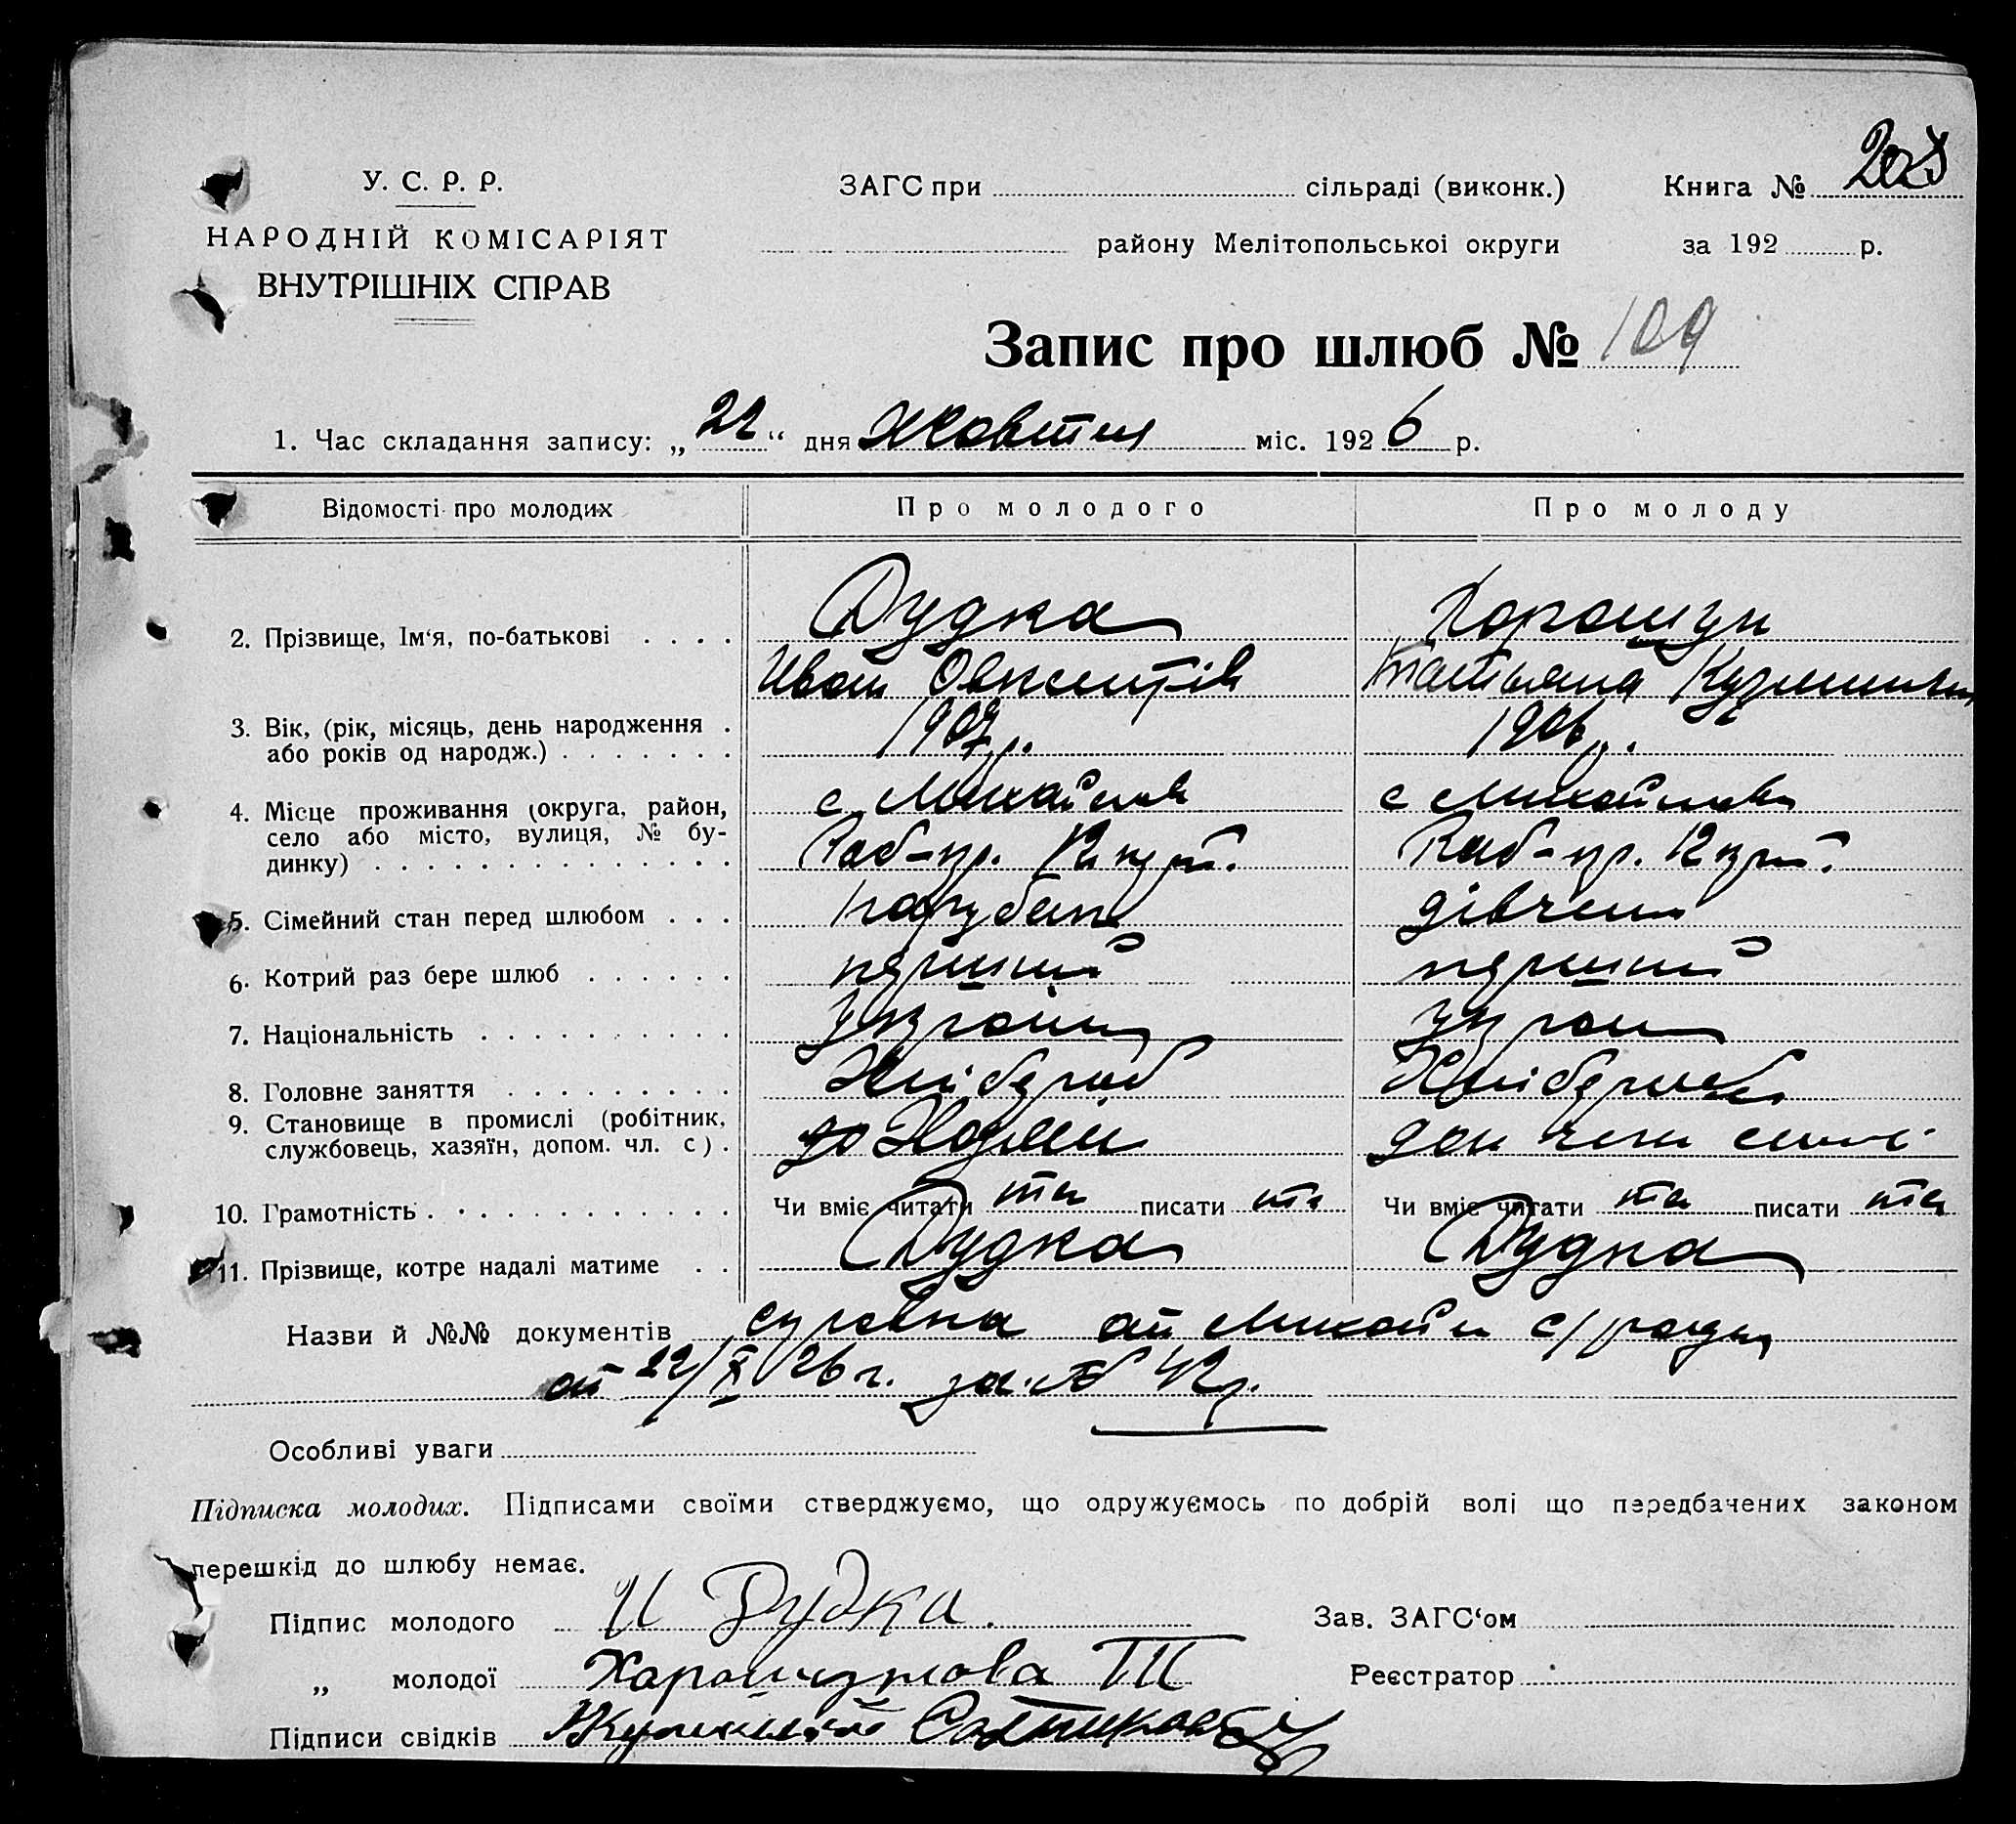 У. С. Р. Р.
НАРОДНІЙ КОМІСАРІЯТ
ВНУТРІШНІХ СПРАВ
ЗАГС при сільраді (виконк.)
Книга №
району Мелітопольської округи
за 192 р.
Запис про шлюб № 109
1. Час складання запису: „22“ дня Жовтня міс. 1926 р.
Відомості про молодих
Про молодого
Про молоду
2. Прізвище, Ім‘я, по-батькові
Дудка
Хорошун
Иван
Татьяна
3. Вік, (рік, місяць, день народження
або років од народж.)
1907 р.
1906 р.
4. Місце проживання (округа, район,
село або місто, вулиця, № бу-
динку)
с Михайлівк
с Михайлівки
5. Сімейний стан перед шлюбом
парубок
дівчина
6. Котрий раз бере шлюб
перший
перший
7. Національність
україн
украин
8. Головне заняття
Хлібороб
9. Становище в промислі (робітник,
службовець, хазяїн, допом. чл. с)
доп член
10. Грамотність
Чи вміє читати та писати та
Чи вміє читати та писати та
11. Прізвище, котре надалі матиме
Дудка
Дудка
Назви й №№ документів
от Михайл с/ради
от 22/X 26 г. за №
Особливі уваги
Підписка молодих. Підписами своїми стверджуємо, що одружуємось по добрій волі що передбачених законом
перешкід до шлюбу немає.
Підпис молодого И Дудка.
Зав. ЗАГС‘ом
„ молодої Харошунова
Реєстратор
Підписи свідків